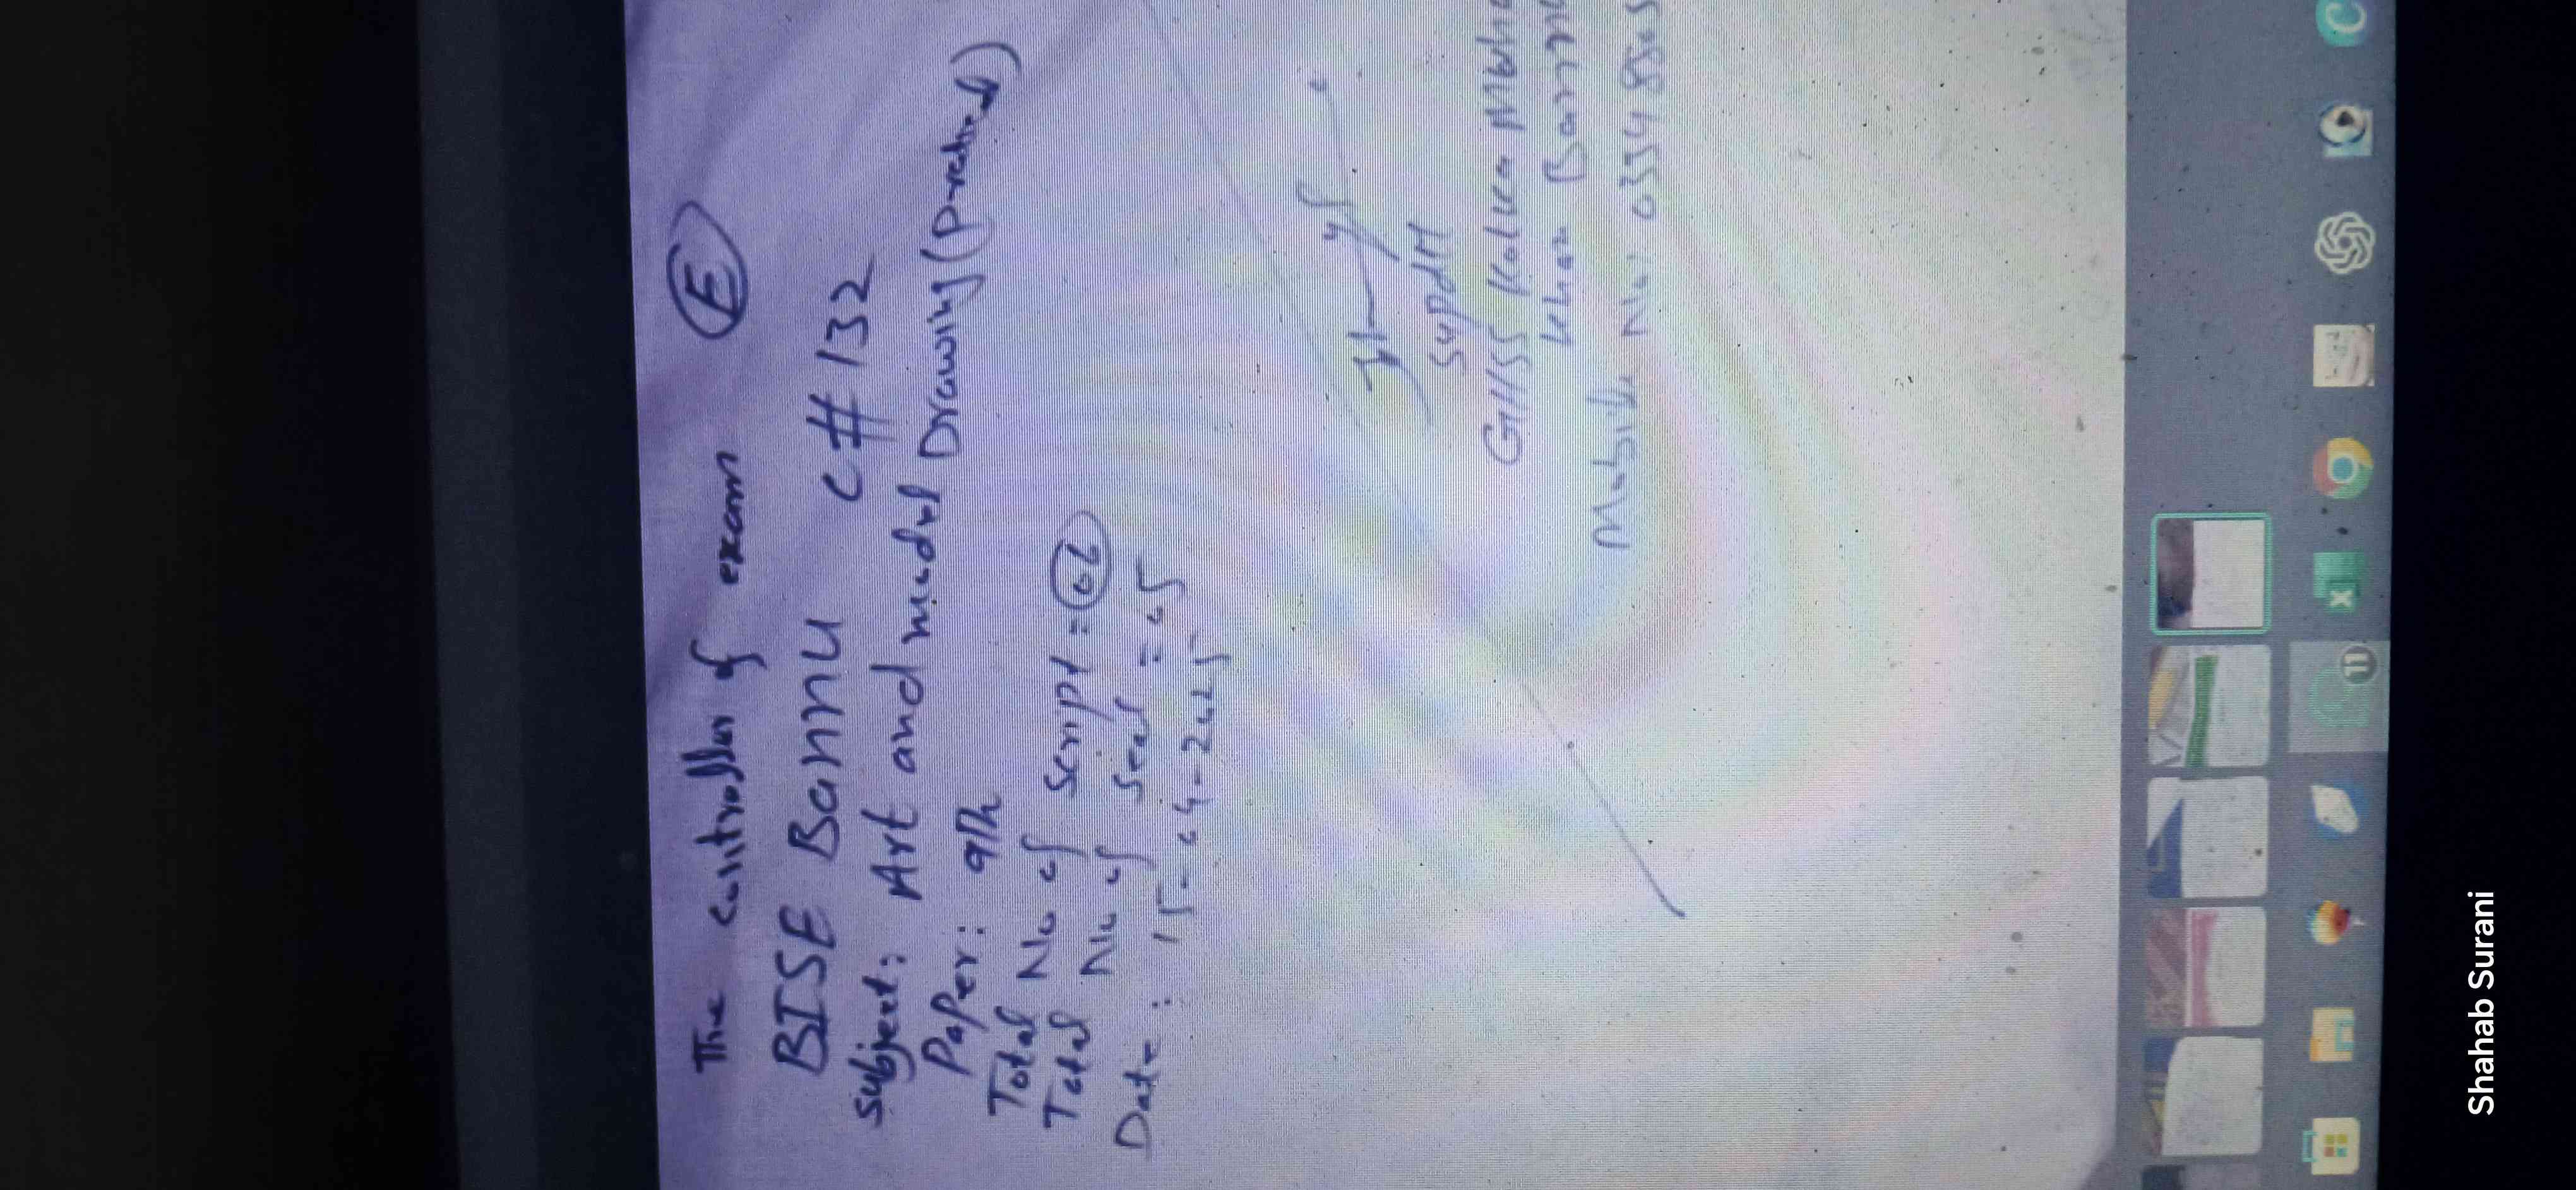 The controller of exam (E)
BISE Bannu C # 132
Subject: Art and model Drawing (Practical)
Paper: 9th
Total No of Script = 02
Total No of Seal = 05
Date: 15-04-2025
Supdtt
GHSS Kalwa
Khan Bannu
Mobile No: 0334 85
11
Shahab Surani